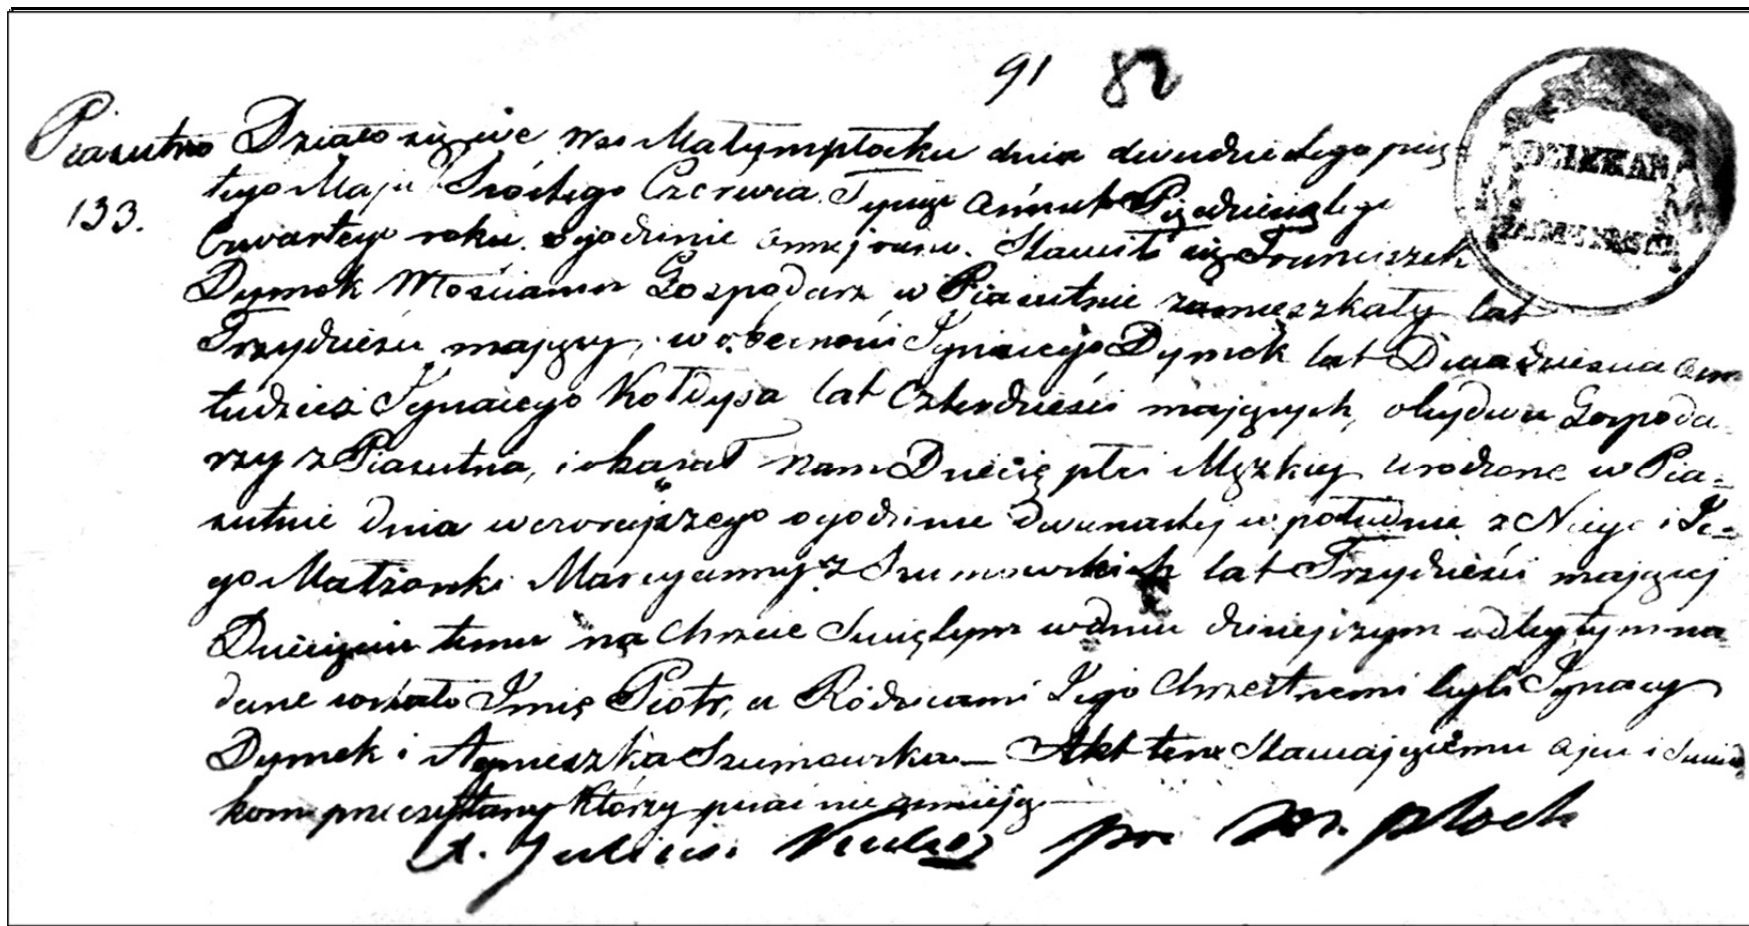 91 82
Piasutno Działo się we wsi Małympłocku dnia dwudziestego pią
133. tego Maja Szóstego Czerwca Tysiąc Ośmset Pięćdziesiątego
Czwartego roku o godzinie ósmej rano. Stawił się Franciszek
Dymek Włościanin Gospodarz w Piasutnie zamieszkały lat
Trzydzieści mający, w obecności Ignacego Dymek lat Dwadzieścia
tudzież Ignacego Kołdysa lat Czterdzieści mających, obydwu Gospoda
rzy z Piasutna, i okazał nam Dziecię płci Męzkiej urodzone w Pia=
sutnie dnia wczorajszego o godzinie dwunastej w południe z Niego i Je=
go Małżonki Maryanny z Szumowskich lat Trzydzieści mającej
Dziecięciu temu na Chrzcie Świętym w dniu dzisiejszym odbytym na
dane zostało Imię Piotr, a Rodzicami Jego Chrzestnemi byli Ignacy
Dymek i Agnieszka Szumowska — Akt ten Stawającemu Ojcu i Świad
kom przeczytany Którzy pisać nie umieją.
X. Julian pr. M. Płock